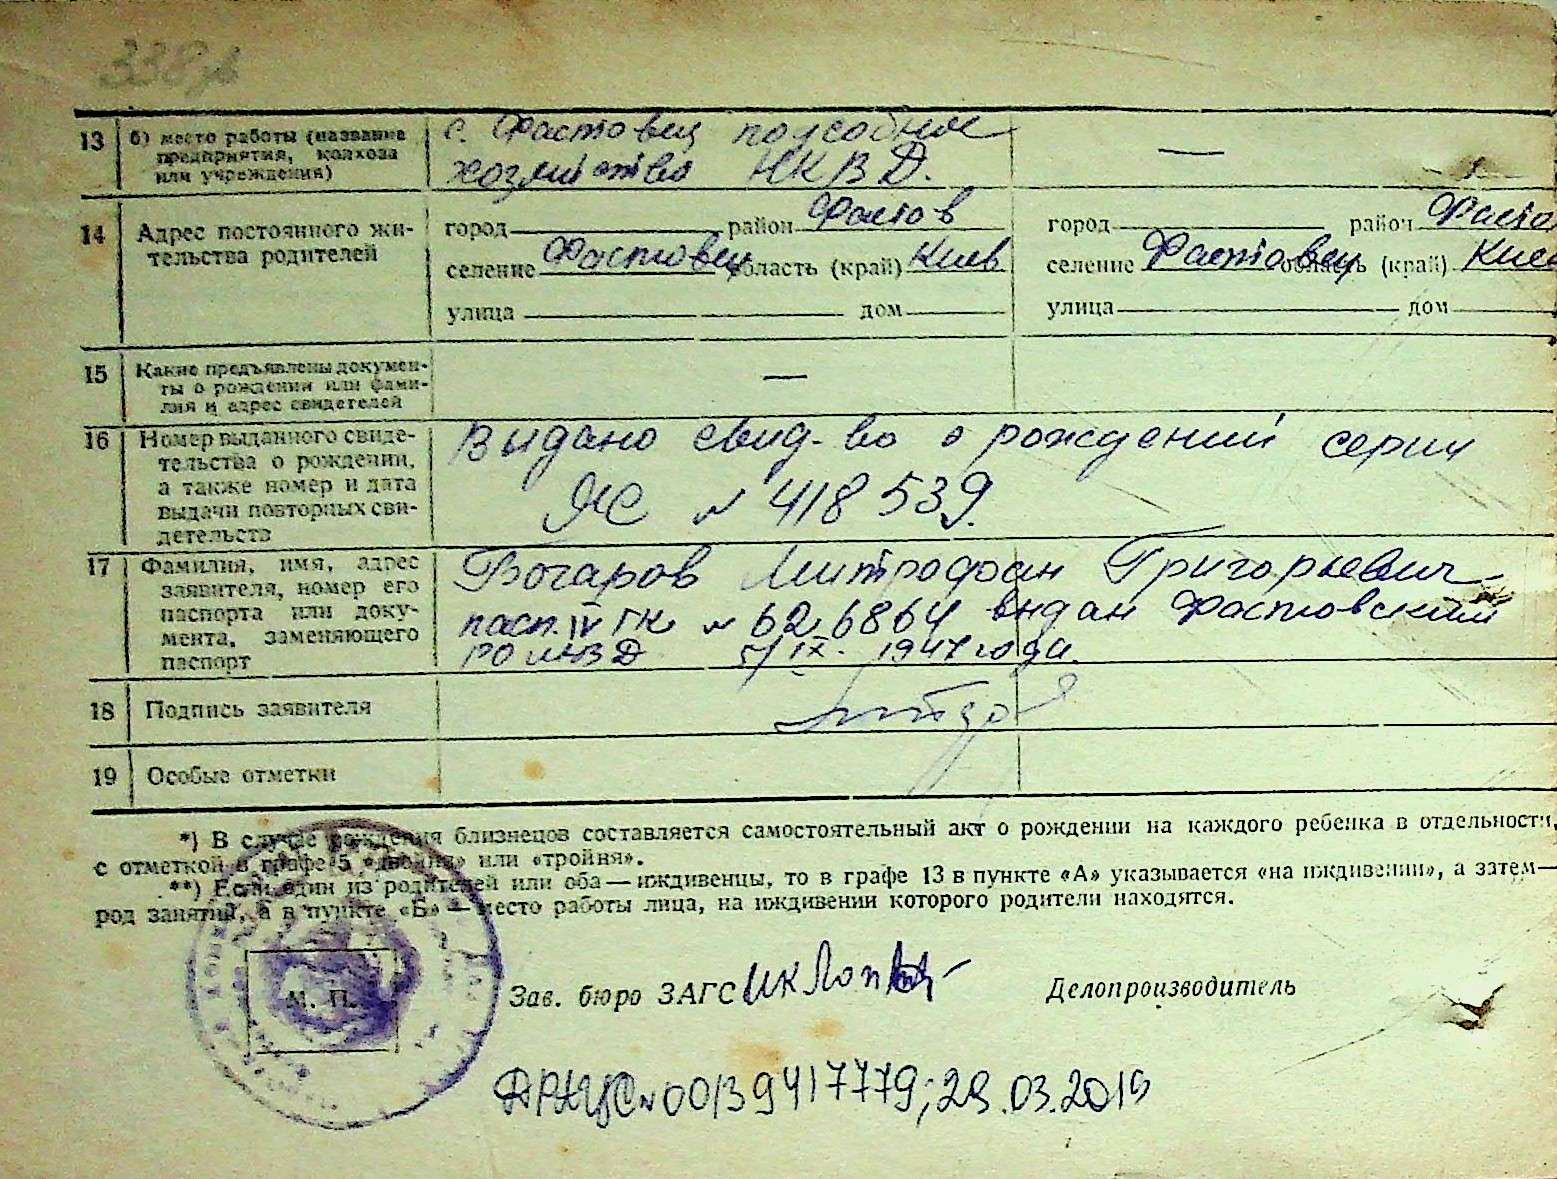 338
13 б) место работы (название предприятия, колхоза или учреждения) с. Фастовец подсобное хозяйство НКВД. —
14 Адрес постоянного жительства родителей
город район Фастов город район Фасто
селение Фастовец область (край) Киев селение Фастовец область (край) Киев
улица дом улица дом
15 Какие предъявлены документы о рождении или фамилия и адрес свидетелей —
16 Номер выданного свидетельства о рождении, а также номер и дата выдачи повторных свидетельств
Выдано свид-во о рождений серии
ЯС № 418539.
17 Фамилия, имя, адрес заявителя, номер его паспорта или документа, заменяющего паспорт
Бочаров Митрофан Григорьевич
пасп. IV ГК № 626864 выдан Фастовский
РО МВД 5/IX. 1947 года.
18 Подпись заявителя
19 Особые отметки
*) В случае рождения близнецов составляется самостоятельный акт о рождении на каждого ребенка в отдельности,
с отметкой в графе 5 «двойня» или «тройня».
**) Если один из родителей или оба — иждивенцы, то в графе 13 в пункте «А» указывается «на иждивении», а затем—
род занятий, а в пункте «Б» — место работы лица, на иждивении которого родители находятся.
М. П.
Зав. бюро ЗАГС Делопроизводитель
ДРАЦС № 00139417779; 29.03.2019